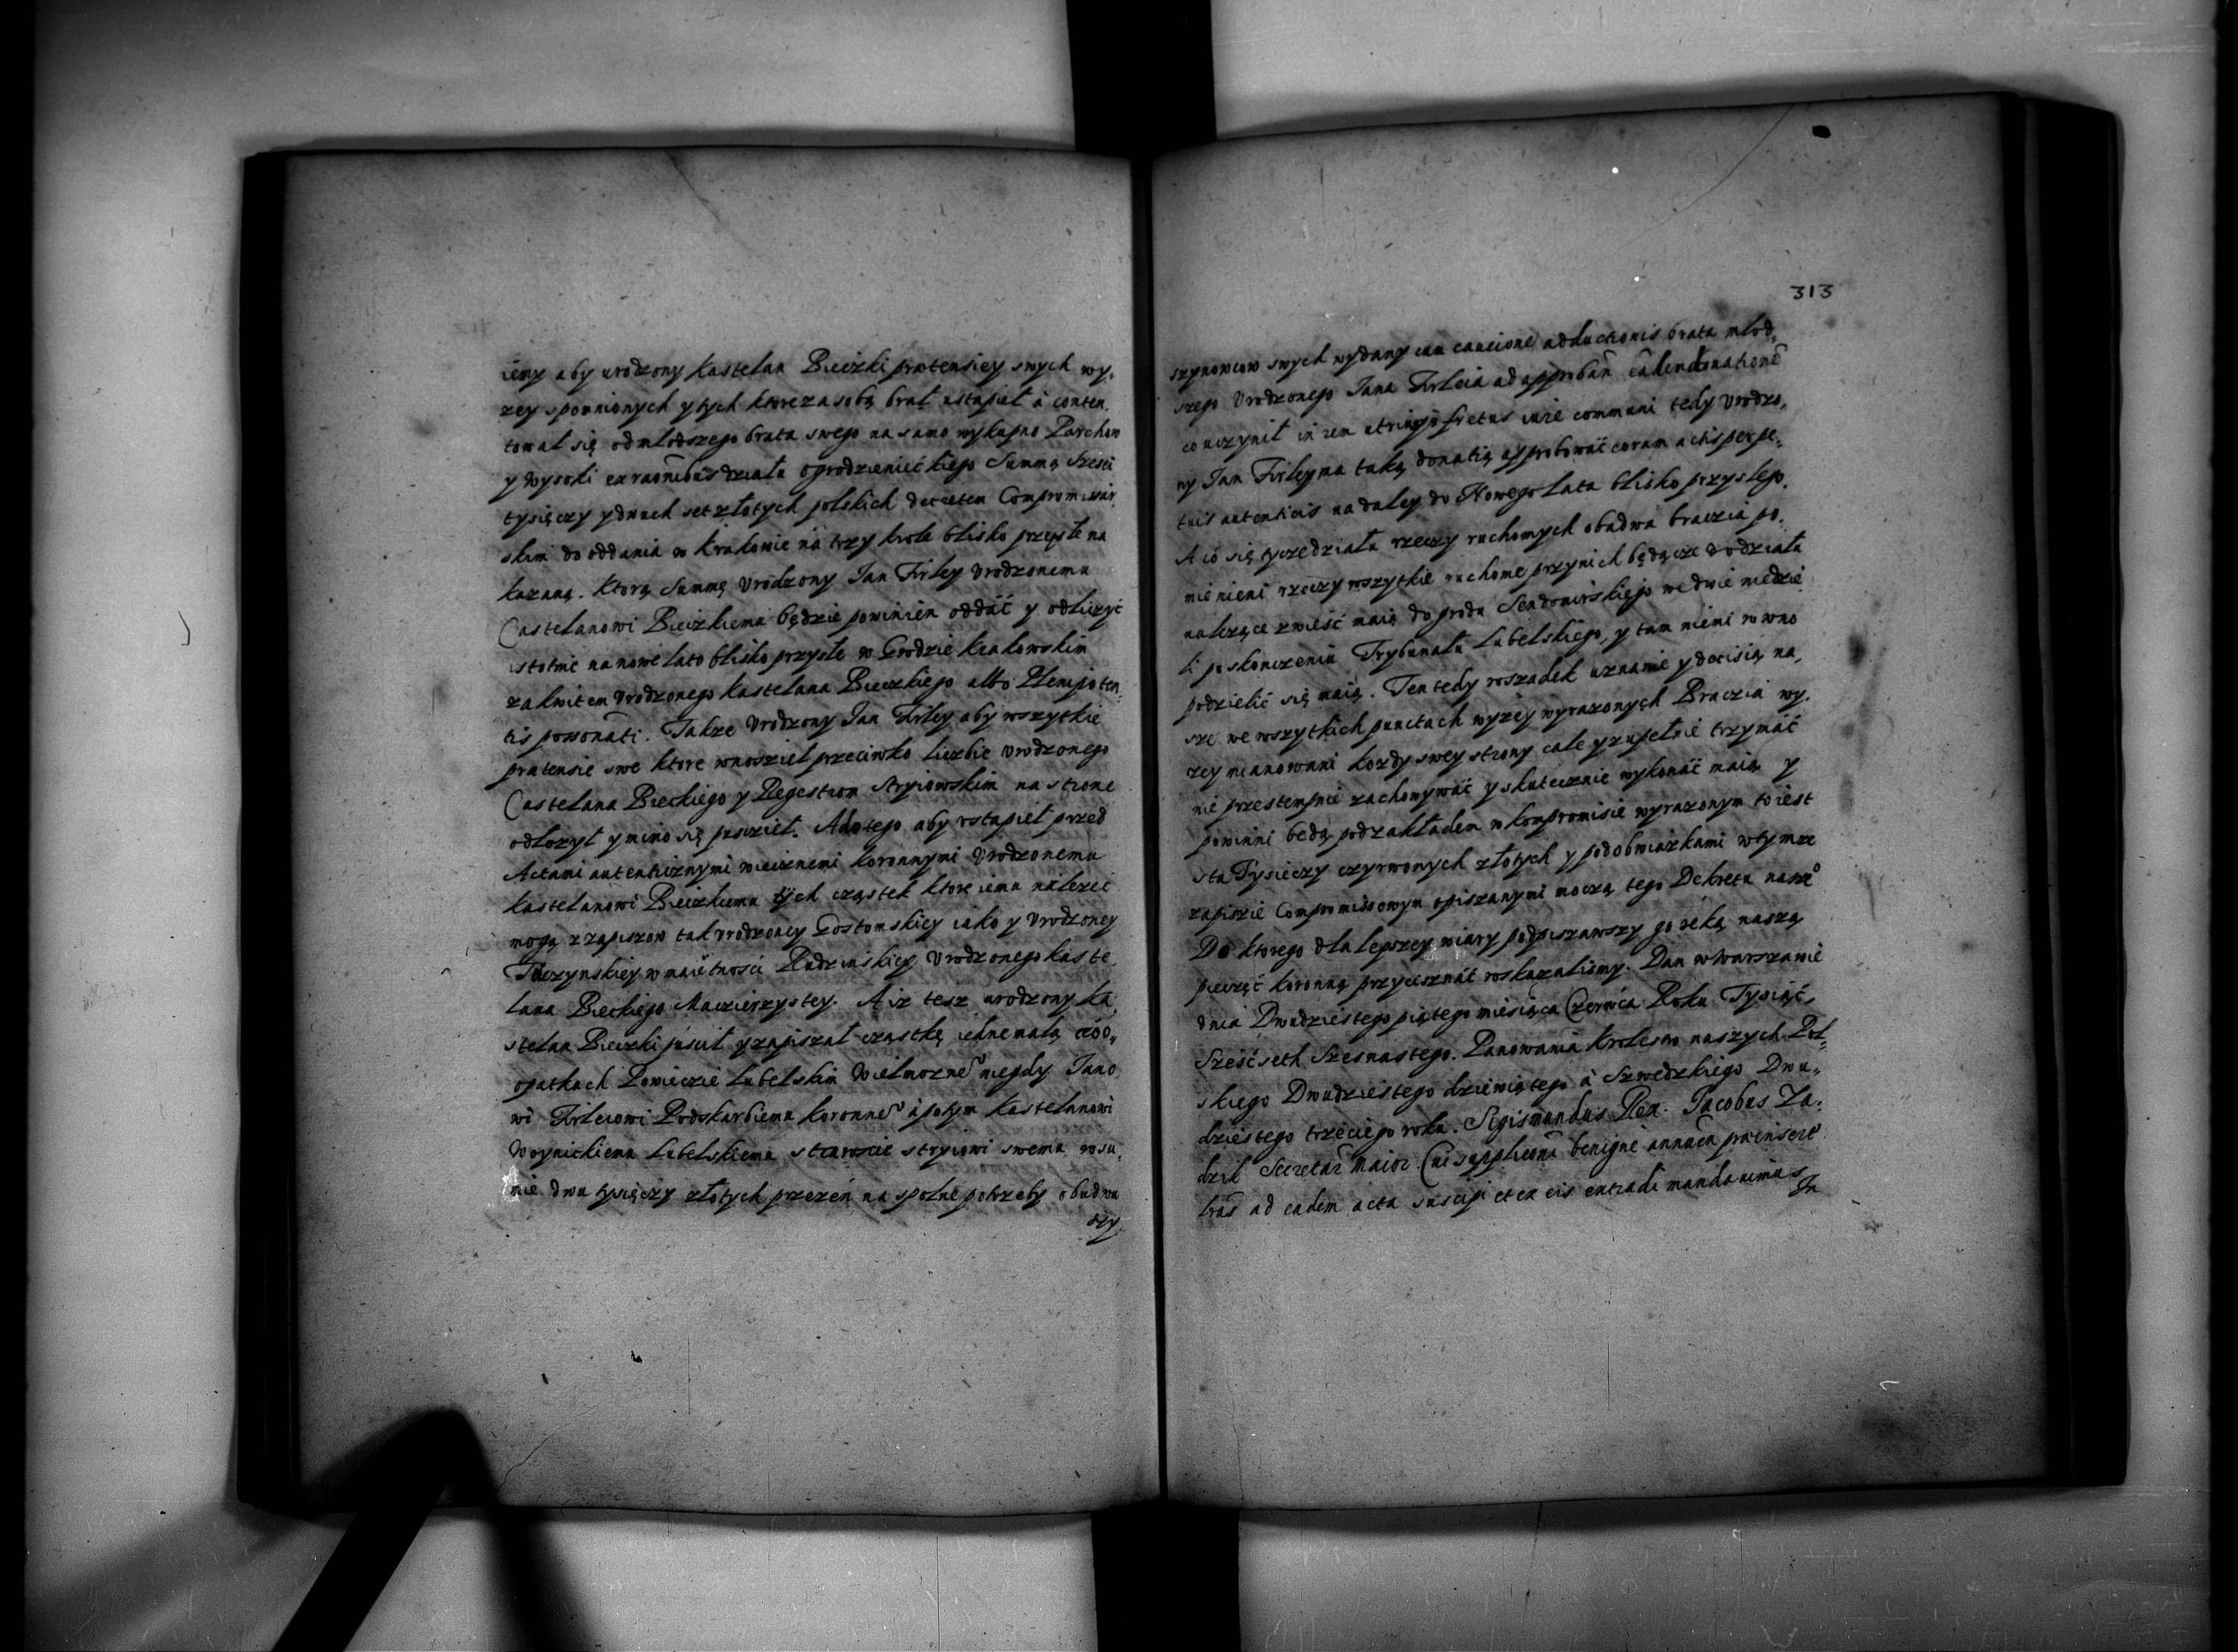 iemy aby urodzony kastelan Bieczki prætensiey swych wy,
zey spomnionych y tych ktore za sobą brał ustąpieł à conten,
towal się od mlodszego brata swego na samo wykupno Parchow
y Wysoki ex raonibus działu ogrodzienieckiego Summą Szesci
tysięczy y dwuch set złotych polskich decretem Compromissar,
skim do oddania w krakowie na trzy krole blisko przyszłe na
kazaną. ktorą Summę Urodzony Jan Firley Urodzonemu
Castelanowi Bieczkiemu będzie powinien oddać y odliczyć
istotnie na nowe lato blisko przyszłe w Grodzie krakowskim
za kwitem Urodzonego kastelana Bieczkiego albo Plenipoten,
tis personati. Takze Urodzony Jan Firley aby wszytkie
prætensie swe ktore wnosziel przeciwko liczbie Urodzonego
Castelana Bieckiego y Regestrom Stryiowskim na strone
odłozył y mimo się pusczieł. A do tego aby ustąpieł przed
Actami autenticznymi wiecznemi koronnymi Urodzonemu
kastelanowi Bieczkiemu tych cząstek ktore iemu należeć
mogą z zapiszow tak Urodzoney Gostomskiey iako y Urodzoney
Tęczynskiey w maiętności Rudzinskiey Urodzonego kaste,
lana Bieckiego Maczierzystey. A iz tesz urodzony ka,
stelan Bieczki puscił y zapiszał cząstkę iedne małą w
opatkach Powieczie Lubelskim Wielmozne° niegdy Jano
wi Firleiowi Podskarbiemu koronne° à potym kastelanowi
Woynickiemu Lubelskiemu staroscie stryiowi swemu w su,
mie dwu tysięczy złotych przezeń na społne potrzeby obudwu
szy
313
szynowcow swych wydany cum cautione adductionis brata mlod,
szego Urodzonego Jana Firleia ad approban eandem donationē
co uczynił in rem utriusque fretus iure communi tedy Urodzo,
ny Jan Firley ma taką donatią approbować coram actis perpe,
tuis autenticis nadaley do Nowego Lata blisko przyszłego.
A co się tycze działu rzeczy ruchomych obadwa braczia po,
mienieni rzeczy wszytkie ruchome przy nich będącze do działu
należące zwieść maią do grodu Sendomirskiego we dwie niedzie
li po skonczeniu Trybunału Lubelskiego, y tam niemi rowno
podzielić się maią. Ten tedy roszadek uznanie y decisią na,
sze we wszytkich punctach wyżey wyrazonych Braczia wy,
zey mianowani kozdy swey strony cale y zupełnie trzymać
nie przestempnie zachowywać y skutecznie wykonać maią y
powinni będą pod zakładem w kompromisie wyrazonym to iest
sta Tysięczy czyrwonych złotych y pod obwiązkami w tymze
zapiszie Compromissowym opiszanymi moczą tego Dekretu nasze°
Do ktorego dla lepszey wiary podpiszawszy go ręką naszą
pieczęć koronną przycisznąć roskazalismy. Dan w Warszawie
dnia Dwudziestego piątego miesiąca Czerwca Roku Tysiąc,
Sześćseth Szesnastego. Panowania Krolestw naszych Pol,
skiego Dwudziestego dziewiątego à Szwedzkiego Dwu,
dziestego trzeciego roku. Sigismundus Rex. Jacobus Za,
dzik Secretar̄ maior. Cui supplicōni benigne annuen præinsere
lras ad eadem acta suscipi et ex eis extradi mandavimus
In